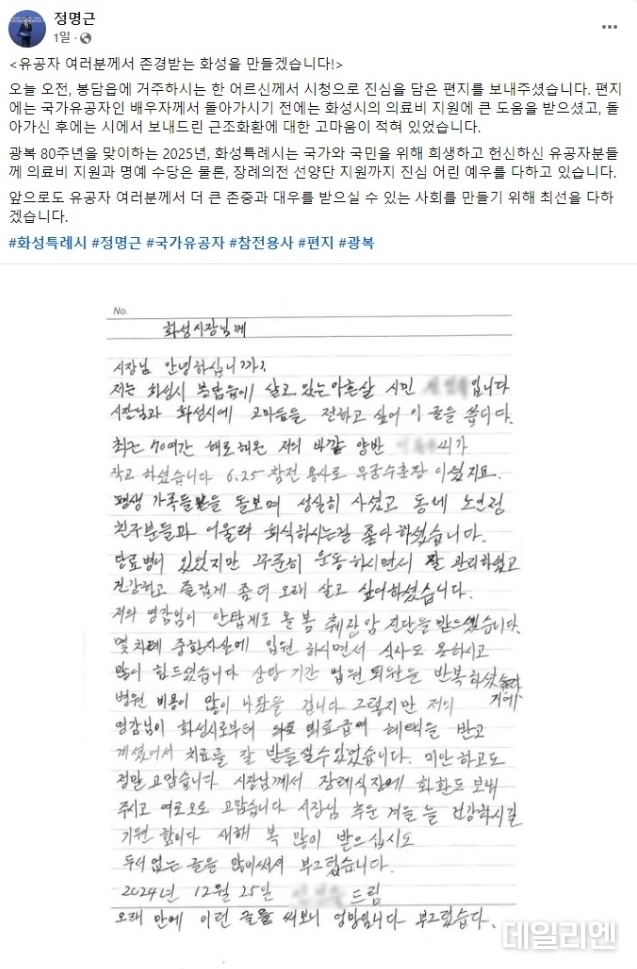 정명근
1일 ·
<유공자 여러분께서 존경받는 화성을 만들겠습니다!>
오늘 오전, 봉담읍에 거주하시는 한 어르신께서 시청으로 진심을 담은 편지를 보내주셨습니다. 편지
에는 국가유공자인 배우자께서 돌아가시기 전에는 화성시의 의료비 지원에 큰 도움을 받으셨고, 돌
아가신 후에는 시에서 보내드린 근조화환에 대한 고마움이 적혀 있었습니다.
광복 80주년을 맞이하는 2025년, 화성특례시는 국가와 국민을 위해 희생하고 헌신하신 유공자분들
께 의료비 지원과 명예 수당은 물론, 장례의전 선양단 지원까지 진심 어린 예우를 다하고 있습니다.
앞으로도 유공자 여러분께서 더 큰 존중과 대우를 받으실 수 있는 사회를 만들기 위해 최선을 다하
겠습니다.
#화성특례시 #정명근 #국가유공자 #참전용사 #편지 #광복
No.
화성시장님께
시장님 안녕하십니까?
저는 화성시 봉담읍에 살고 있는 아흔살 시민 입니다
시장님과 화성시에 고마음을 전하고 싶어 이 글을 씁니다.
최근 70여간 해로해온 저의 바깥 양반 씨가
작고 하셨습니다 6.25 참전 용사로 무궁수훈장 이셨지요.
평생 가족들을 돌보며 성실히 사셨고 동네 노인정
친구분들과 어울려 회식하시는걸 좋아하셨습니다.
당료병이 있었지만 꾸준히 운동하시면서 잘 관리하셨고
건강하고 즐겁게 좀 더 오래 살고 싶어하셨습니다.
저의 영감님이 안탑게도 올 봄 췌관암 진단을 받으셨습니다.
몇차례 중환자실에 입원 하시면서 식사도 못하시고
많이 힘드셨습니다 상당 기간 입원 퇴원을 반복하셨습니다
병원 비용이 많이 나왔을 겁니다 그렇지만 저의
영감님이 화성시로부터 의료급여 혜택을 받고
계셨어서 치료를 잘 받을실수 있었습니다. 미안하고도
정말 고맙습니다 시장님께서 장례식장에 화환도 보내
주시고 여로모로 고맙습니다 시장님 추운 겨울 늘 건강하시길
기원 합니다 새해 복 많이 받으십시요
두서없는 글을 많이써서 부끄럽습니다.
2024년 12월 25일 드림
오래 만에 이런 글을 써보니 엉망입니다 부끄럽습다.
데일리엔